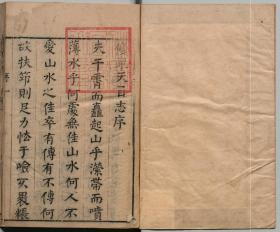 天台志序
夫干霄而矗起山乎瀠帶而噴
薄水乎何處無佳山水何人不
愛山水之佳卒有傳有不傳何
欤扶筇則足力怯于嶮裹糧
序一